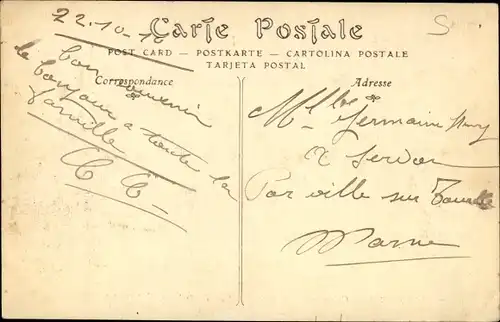 22-10-
Carte Postale
POST CARD — POSTKARTE — CARTOLINA POSTALE
TARJETA POSTAL
Correspondance
Bon souvenir
le bonjour a toute la
famille
Adresse
Mlle Germaine
A Servon
Par ville sur Tourbe
Marne